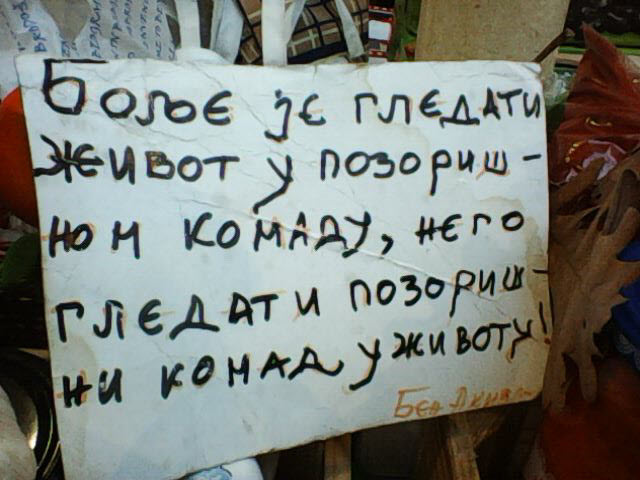 Боље је гледати
живот у позориш-
ном комаду, него
гледати позориш-
ни комад у животу!
Бен Акиба